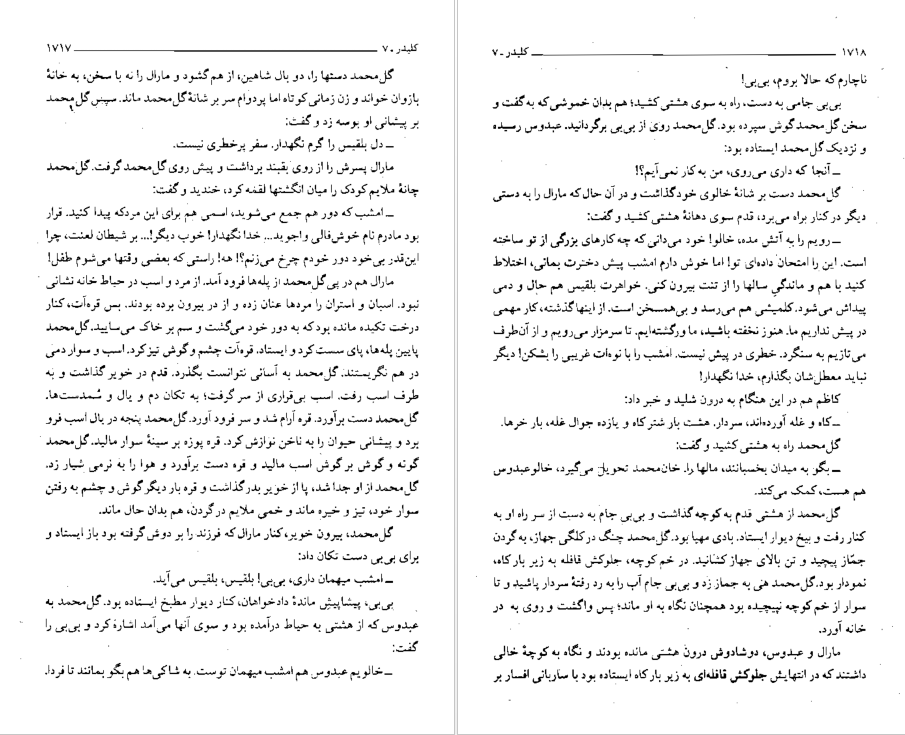 کلیدر ـ ۷ ــــــ ۱۷۱۷
گل‌محمد دستها را، دو بال شاهین، از هم گشود و مارال را نه با سخن، به خانهٔ
بازوان خواند و زن زمانی کوتاه اما پردوام سر بر شانهٔ گل‌محمد ماند. سپس گل‌محمد
بر پیشانی او بوسه زد و گفت:
ــ دل بلقیس را گرم نگهدار. سفر پرخطری نیست.
مارال پسرش را از روی بقبند برداشت و پیش روی گل‌محمد گرفت. گل‌محمد
چانهٔ ملایم کودک را میان انگشتها لقمه کرد، خندید و گفت:
ــ امشب که دور هم جمع می‌شوید، اسمی هم برای این مردکه پیدا کنید. قرار
بود مادرم نام خوش‌فالی واجوید... خدا نگهدار! خوب دیگر!... بر شیطان لعنت، چرا
این‌قدر بی‌خود دور خودم چرخ می‌زنم؟! هه! راستی که بعضی وقتها می‌شوم طفل!
مارال هم در پی گل‌محمد از پله‌ها فرود آمد. از مرد و اسب در حیاط خانه نشانی
نبود. اسبان و استران را مردها عنان زده و از در بیرون برده بودند. بس قره‌آت، کنار
درخت تکیده مانده بود که به دور خود می‌گشت و سم بر خاک می‌سایید. گل‌محمد
پایین پله‌ها، پای سست کرد و ایستاد. قره‌آت چشم و گوش تیز کرد. اسب و سوار دمی
در هم نگریستند. گل‌محمد به آسانی نتوانست بگذرد. قدم در خویر گذاشت و به
طرف اسب رفت. اسب بی‌قراری از سر گرفت؛ به تکان دم و یال و سُمدست‌ها.
گل‌محمد دست برآورد. قره آرام شد و سر فرود آورد. گل‌محمد پنجه در یال اسب فرو
برد و پیشانی حیوان را به ناخن نوازش کرد. قره پوزه بر سینهٔ سوار مالید. گل‌محمد
گونه و گوش بر گوش اسب مالید و قره دست برآورد و هوا را به نرمی شیار زد.
گل‌محمد از او جدا شد، پا از خویر بدر گذاشت و قره بار دیگر گوش و چشم به رفتن
سوار خود، تیز و خیره ماند و خمی ملایم در گردن، هم بدان حال ماند.
گل‌محمد، بیرون خویر، کنار مارال که فرزند را بر دوش گرفته بود باز ایستاد و
برای بی‌بی دست تکان داد:
ــ امشب میهمان داری، بی‌بی! بلقیس، بلقیس می‌آید.
بی‌بی، پیشاپیش ماندهٔ دادخواهان، کنار دیوار مطبخ ایستاده بود. گل‌محمد به
عبدوس که از هشتی به حیاط درآمده بود و سوی آنها می‌آمد اشاره کرد و بی‌بی را
گفت:
ــ خالویم عبدوس هم امشب میهمان توست. به شاکی‌ها هم بگو بمانند تا فردا.
۱۷۱۸ ــــــ کلیدر ـ ۷
ناچارم که حالا بروم، بی‌بی!
بی‌بی جامی به دست، راه به سوی هشتی کشید؛ هم بدان خموشی که به گفت و
سخن گل‌محمد گوش سپرده بود. گل‌محمد روی از بی‌بی برگردانید. عبدوس رسیده
و نزدیک گل‌محمد ایستاده بود:
ــ آنجا که داری می‌روی، من به کار نمی‌آیم؟!
گل‌محمد دست بر شانهٔ خالوی خود گذاشت و در آن حال که مارال را به دستی
دیگر در کنار براه می‌برد، قدم سوی دهانهٔ هشتی کشید و گفت:
ــ رویم را به آتش مده، خالو! خود می‌دانی که چه کارهای بزرگی از تو ساخته
است. این را امتحان داده‌ای تو! اما خوش دارم امشب پیش دخترت بمانی، اختلاط
کنید با هم و ماندگیِ سالها را از تنت بیرون کنی. خواهرت بلقیس هم حال و دمی
پیداش می‌شود. کلمیشی هم می‌رسد و بی‌همسخن است. از اینها گذشته، کار مهمی
در پیش نداریم ما. هنوز نخفته باشید، ما ورگشته‌ایم. تا سرمزار می‌رویم و از آن‌طرف
می‌تازیم به سنگرد. خطری در پیش نیست. امشب را با نوه‌ات غریبی را بشکن! دیگر
نباید معطل‌شان بگذارم، خدا نگهدار!
کاظم هم در این هنگام به درون شلید و خبر داد:
ــ کاه و غله آورده‌اند، سردار. هشت بار شتر کاه و یازده جوال غله، بار خرها.
گل‌محمد راه به هشتی کشید و گفت:
ــ بگو به میدان بخسبانند، مالها را. خان‌محمد تحویل می‌گیرد، خالوعبدوس
هم هست، کمک می‌کند.
گل‌محمد از هشتی قدم به کوچه گذاشت و بی‌بی جام به دست از سر راه او به
کنار رفت و بیخ دیوار ایستاد. بادی مهیا بود. گل‌محمد چنگ در کلگی جهاز، به گردن
جمّاز پیچید و تن بالای جهاز کشانید. در خم کوچه، جلوکش قافله به زیر بار کاه،
نمودار بود. گل‌محمد هی به جماز زد و بی‌بی جام آب را به رد رفتهٔ سردار پاشید و تا
سوار از خم کوچه نپیچیده بود همچنان نگاه به او ماند؛ پس واگشت و روی به در
خانه آورد.
مارال و عبدوس، دوشادوش درون هشتی مانده بودند و نگاه به کوچهٔ خالی
داشتند که در انتهایش جلوکش قافله‌ای به زیر بار کاه ایستاده بود با ساربانی افسار بر